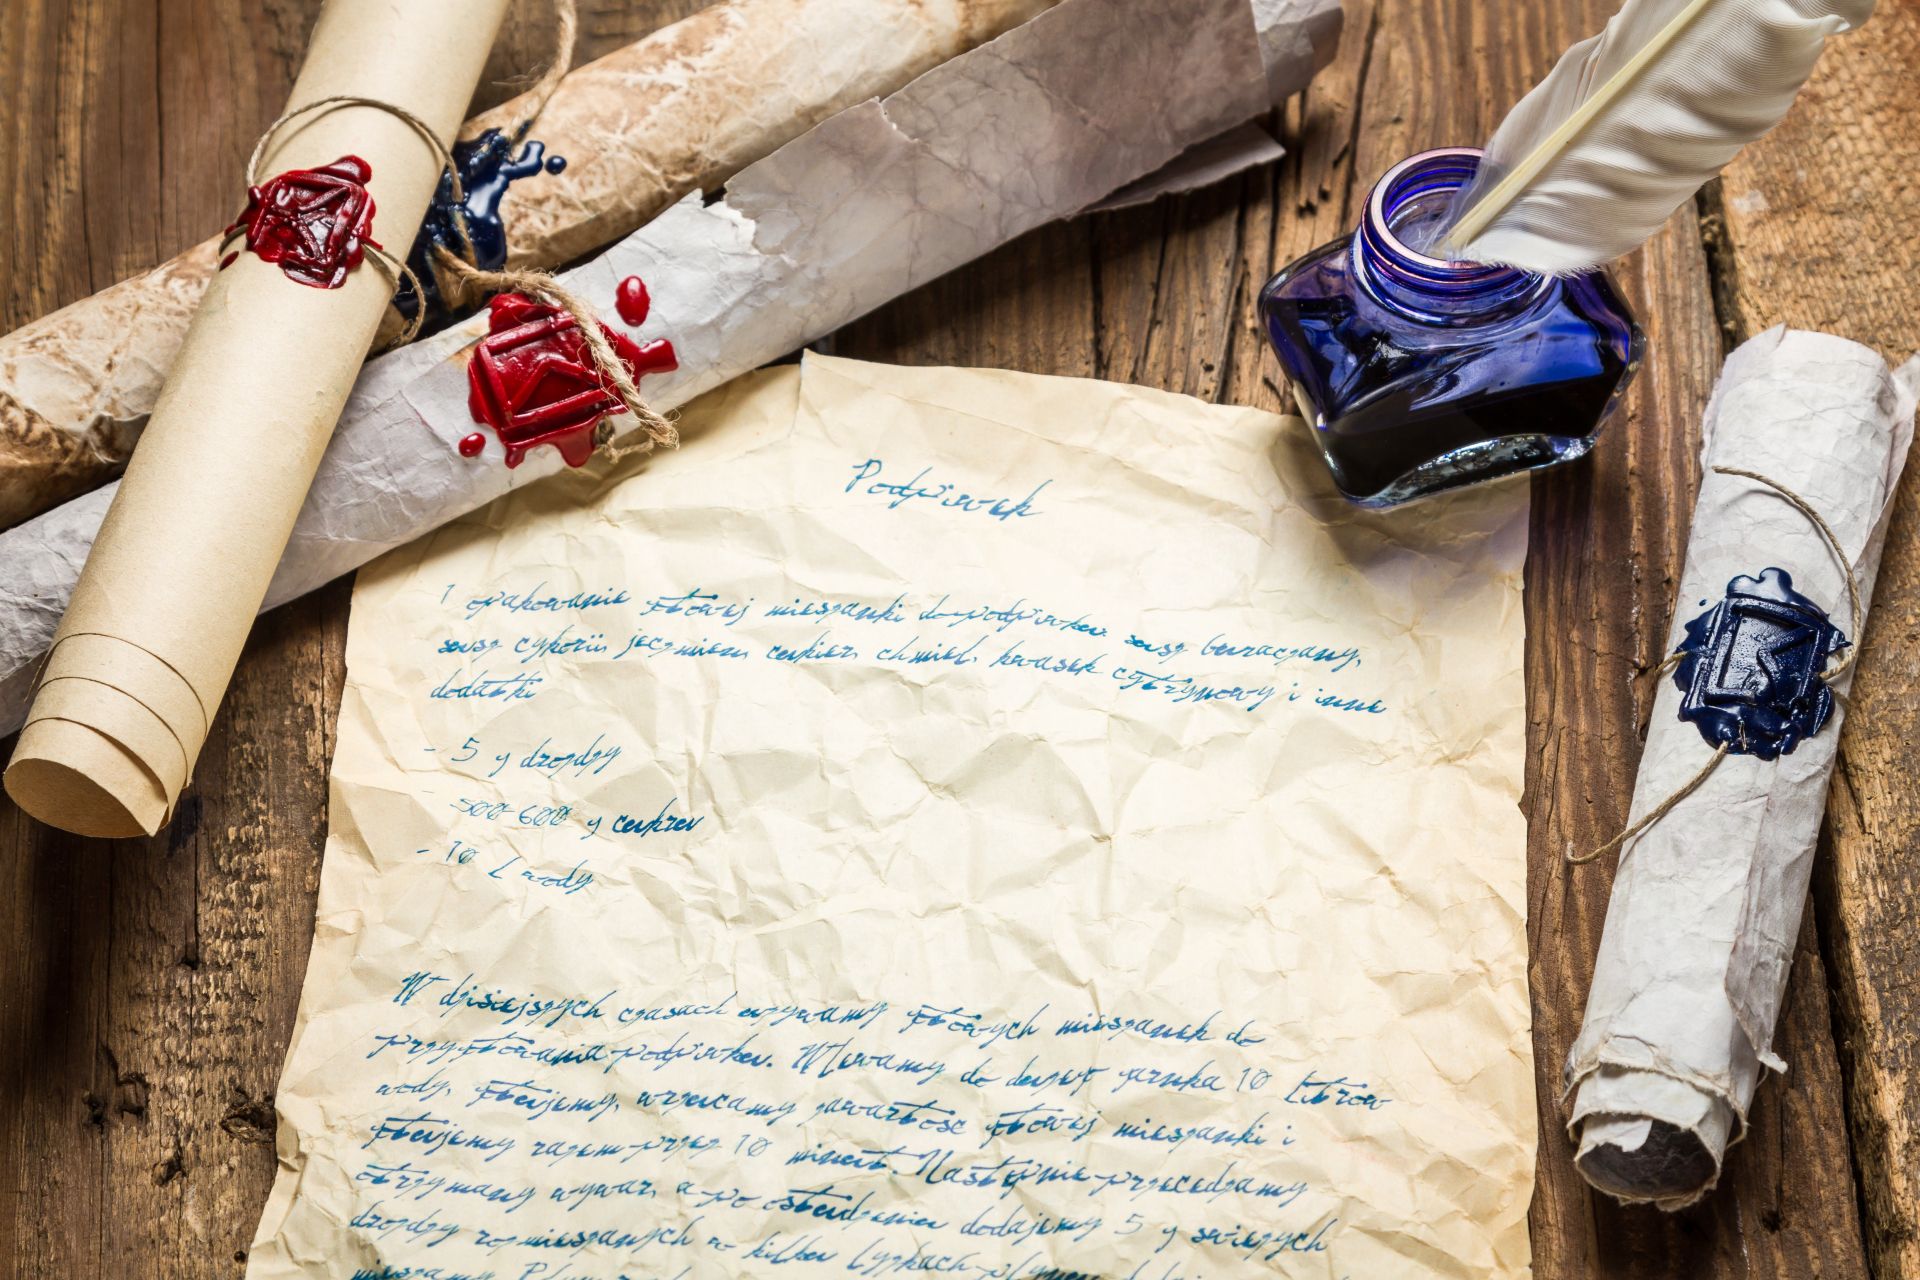 Podpiwek
1 opakowanie gotowej mieszanki do podpiwku: susz buraczany,
susz cykorii, jęczmień, cukier, chmiel, kwasek cytrynowy i inne
dodatki
- 5 g drożdży
- 500-600 g cukru
- 10 L wody
W dzisiejszych czasach używamy gotowych mieszanek do
przygotowania podpiwku. Wlewamy do dużego garnka 10 litrów
wody, gotujemy, wrzucamy zawartość gotowej mieszanki i
gotujemy razem przez 10 minut. Następnie przecedzamy
otrzymany wywar, a po ostudzeniu dodajemy 5 g świeżych
drożdży rozmieszanych w kilku łyżkach płynu
mieszamy